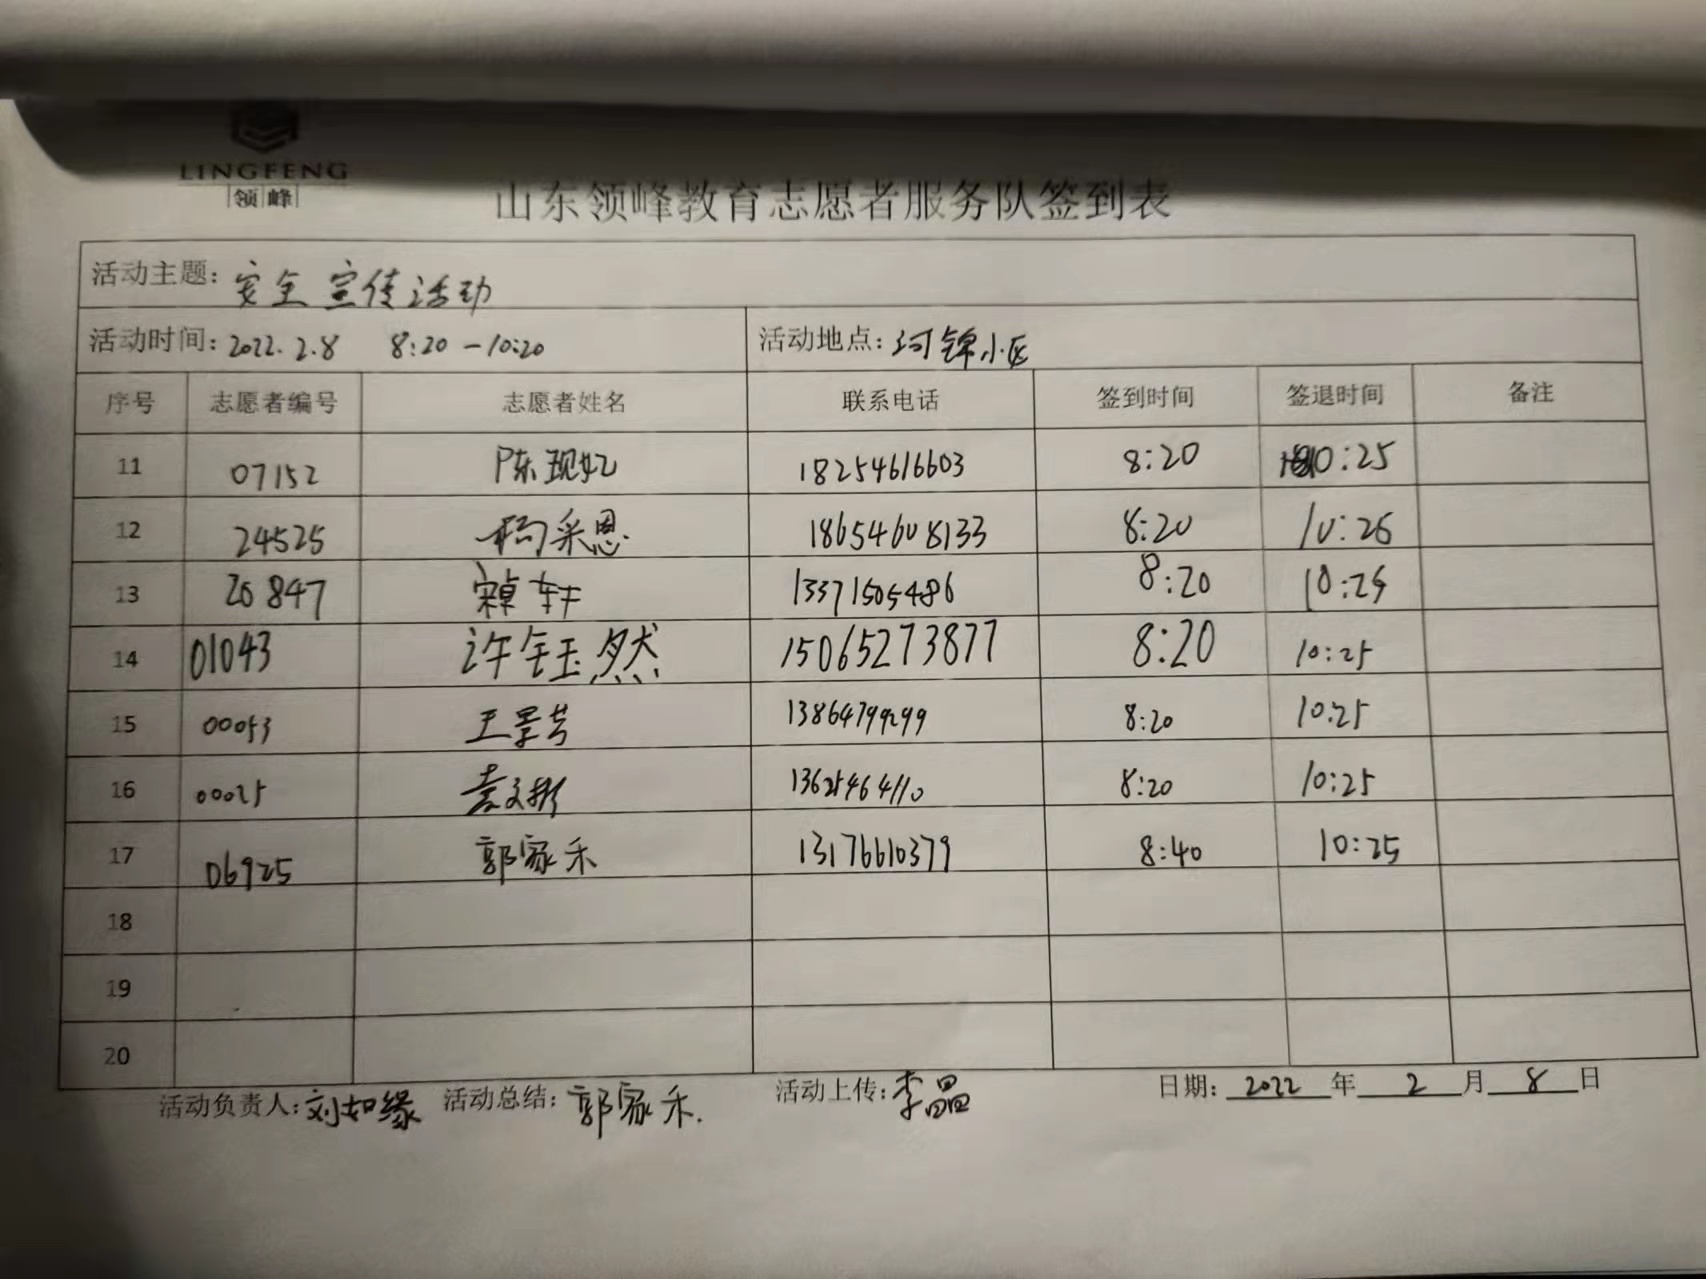 LINGFENG
领峰
山东领峰教育志愿者服务队签到表
活动主题: 安全宣传活动
活动时间: 2022.2.8 8:20-10:20 活动地点: 河锦小区
序号 志愿者编号 志愿者姓名 联系电话 签到时间 签退时间 备注
11 07152 陈现妃 18254616603 8:20 10:25
12 24525 杨采恩 18654608133 8:20 10:26
13 20847 轩 13371505486 8:20 10:25
14 01043 许钰然 15065273877 8:20 10:25
15 00053 王景芸 13864799299 8:20 10:25
16 00025 袁文彬 13625464110 8:20 10:25
17 06925 郭家禾 13176610379 8:40 10:25
18
19
20
活动负责人: 刘如缘 活动总结: 郭家禾. 活动上传: 李晶 日期: 2022 年 2 月 8 日